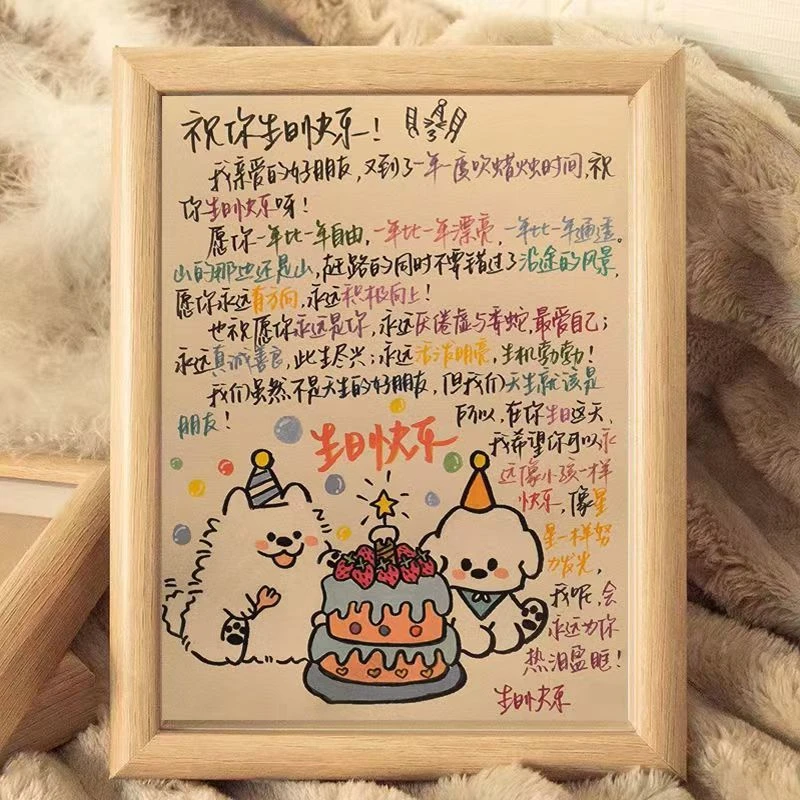 祝你生日快乐!
我亲爱的好朋友,又到了一年一度吹蜡烛时间,祝
你生日快乐呀!
愿你一年比一年自由,一年比一年漂亮,一年比一年通透。
山的那边还是山,赶路的同时不要错过了沿途的风景,
愿你永远有方向,永远积极向上!
也祝愿你永远是你,永远厌倦虚与委蛇,最爱自己;
永远真诚善良,此生尽兴;永远活泼明亮,生机勃勃!
我们虽然不是天生的好朋友,但我们天生就该是
朋友!
所以,在你生日这天,
生日快乐
我希望你可以永
远像小孩一样
快乐,像星
星一样努
力发光,
我呢,会
永远为你
热泪盈眶!
生日快乐